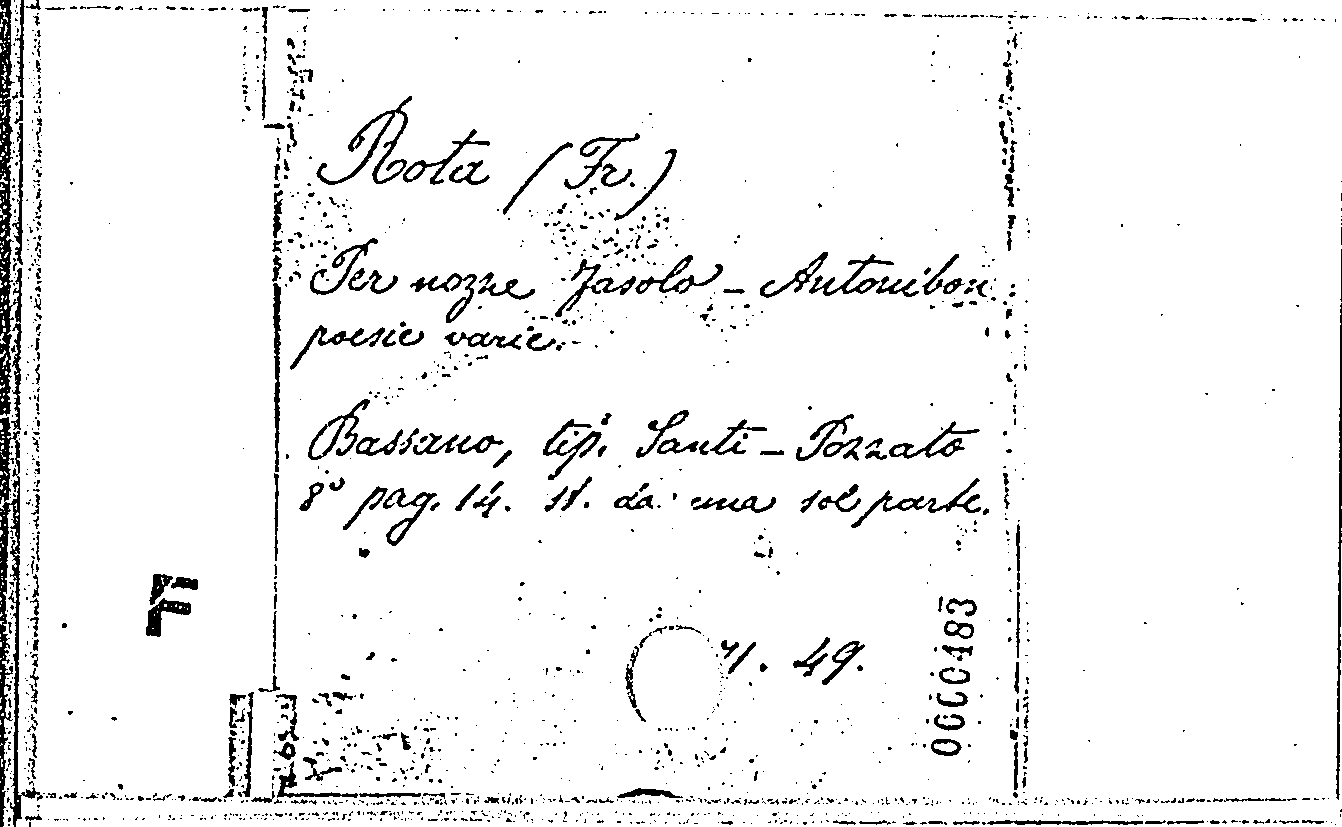 Rota (Fr.)
Per nozze Jasolo - Antonibon
poesie varie.
Bassano, tip. Santi - Pozzato
8º pag. 14. st. da una sol parte.
49.
F
0000483